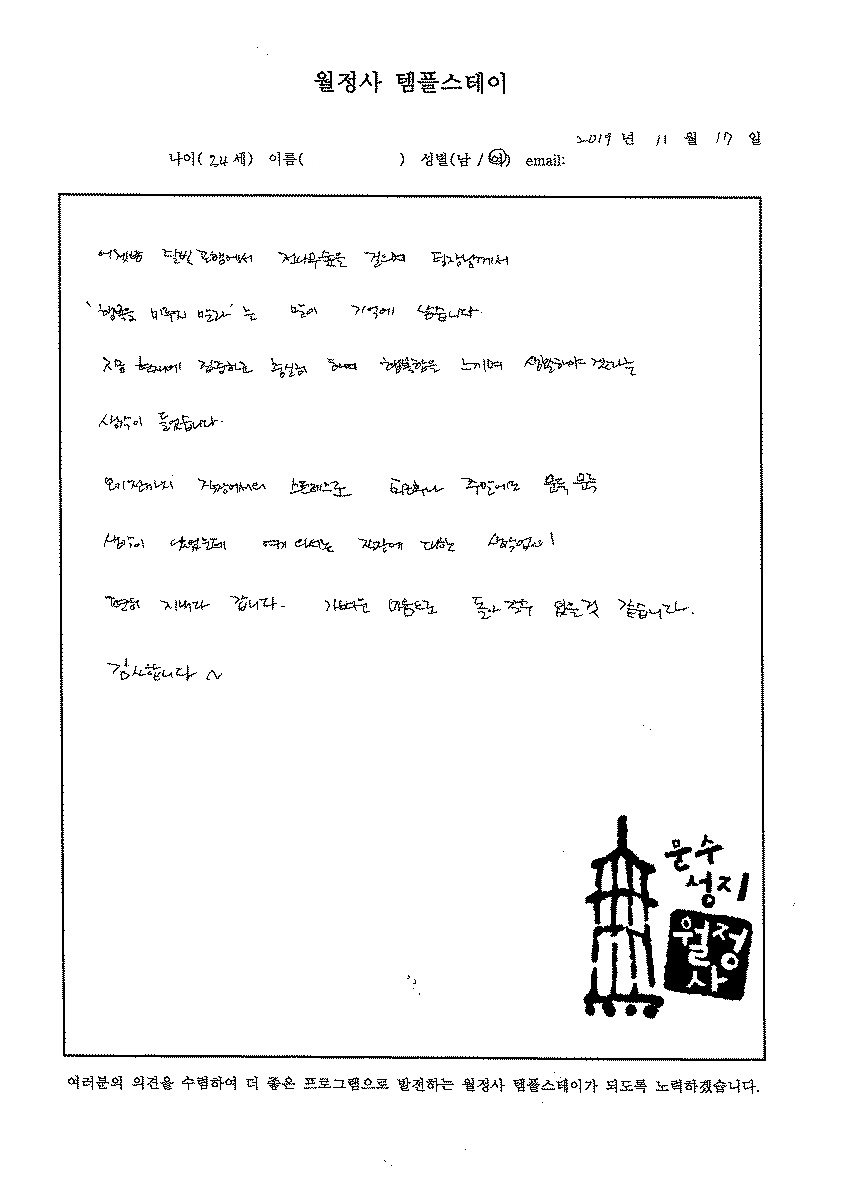 월정사 템플스테이
2019 년 11 월 17 일
나이( 24 세) 이름( ) 성별(남 / 여) email:
어젯밤 달빛 포행에서 전나무숲을 걸으며 팀장님께서
'행복을 미루지 말라'는 말이 기억에 남습니다.
지금 현재에 집중하고 충실히 하며 행복함을 느끼며 생활하야 겠다는
생각이 들었습니다.
오기전까지 직장에서의 스트레스로 퇴근후나 주말에도 문득 문득
생각이 났었는데 여기 와서는 직장에 대한 생각없이
편히 지내다 갑니다. 가벼운 마음으로 돌아 갈수 있을것 같습니다.
감사합니다 ~
문수
성지
월정
사
여러분의 의견을 수렴하여 더 좋은 프로그램으로 발전하는 월정사 템플스테이가 되도록 노력하겠습니다.